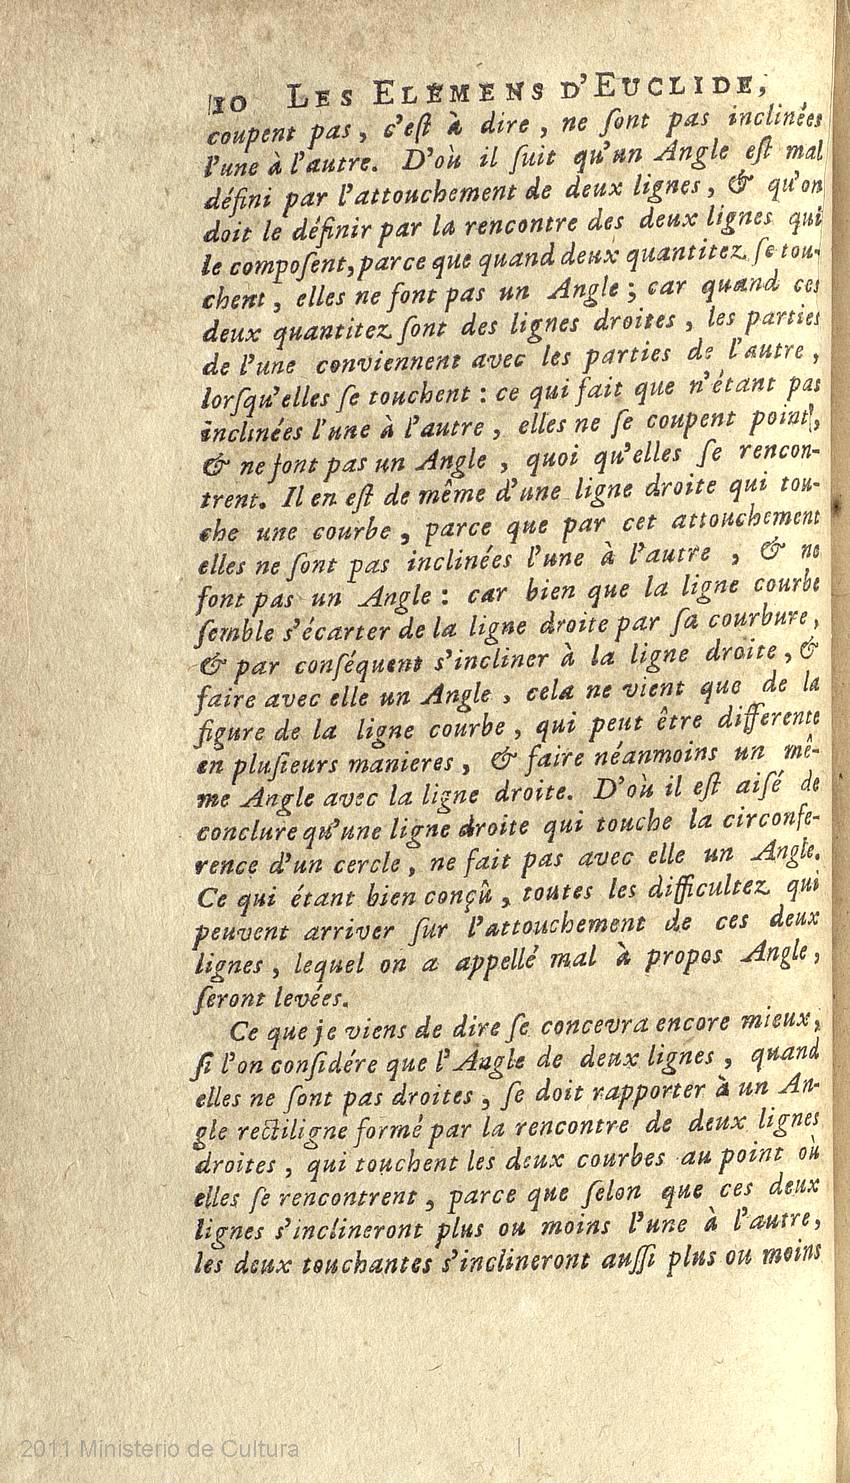 10 LES ELEMENS D'EUCLIDE,
coupent pas, c'eſt à dire, ne ſont pas inclinées
l'une à l'autre. D'où il ſuit qu'un Angle eſt mal
défini par l'attouchement de deux lignes, & qu'on
doit le définir par la rencontre des deux lignes qui
le compoſent, parce que quand deux quantitez ſe tou-
chent, elles ne font pas un Angle; car quand ces
deux quantitez ſont des lignes droites, les parties
de l'une conviennent avec les parties de l'autre,
lorſqu'elles ſe touchent: ce qui fait que n'étant pas
inclinées l'une à l'autre, elles ne ſe coupent point,
& ne font pas un Angle, quoi qu'elles ſe rencon-
trent. Il en eſt de même d'une ligne droite qui tou-
che une courbe, parce que par cet attouchement
elles ne ſont pas inclinées l'une à l'autre, & ne
font pas un Angle: car bien que la ligne courbe
ſemble s'écarter de la ligne droite par ſa courbure,
& par conſéquent s'incliner à la ligne droite, &
faire avec elle un Angle, cela ne vient que de la
figure de la ligne courbe, qui peut être differente
en pluſieurs manieres, & faire néanmoins un mê-
me Angle avec la ligne droite. D'où il eſt aiſé de
conclure qu'une ligne droite qui touche la circonfe-
rence d'un cercle, ne fait pas avec elle un Angle.
Ce qui étant bien conçû, toutes les difficultez qui
peuvent arriver ſur l'attouchement de ces deux
lignes, lequel on a appellé mal à propos Angle,
ſeront levées.
Ce que je viens de dire ſe concevra encore mieux,
ſi l'on conſidére que l'Angle de deux lignes, quand
elles ne ſont pas droites, ſe doit rapporter à un An-
gle rectiligne formé par la rencontre de deux lignes
droites, qui touchent les deux courbes au point où
elles ſe rencontrent, parce que ſelon que ces deux
lignes s'inclineront plus ou moins l'une à l'autre,
les deux touchantes s'inclineront auſſi plus ou moins
2011 Ministerio de Cultura